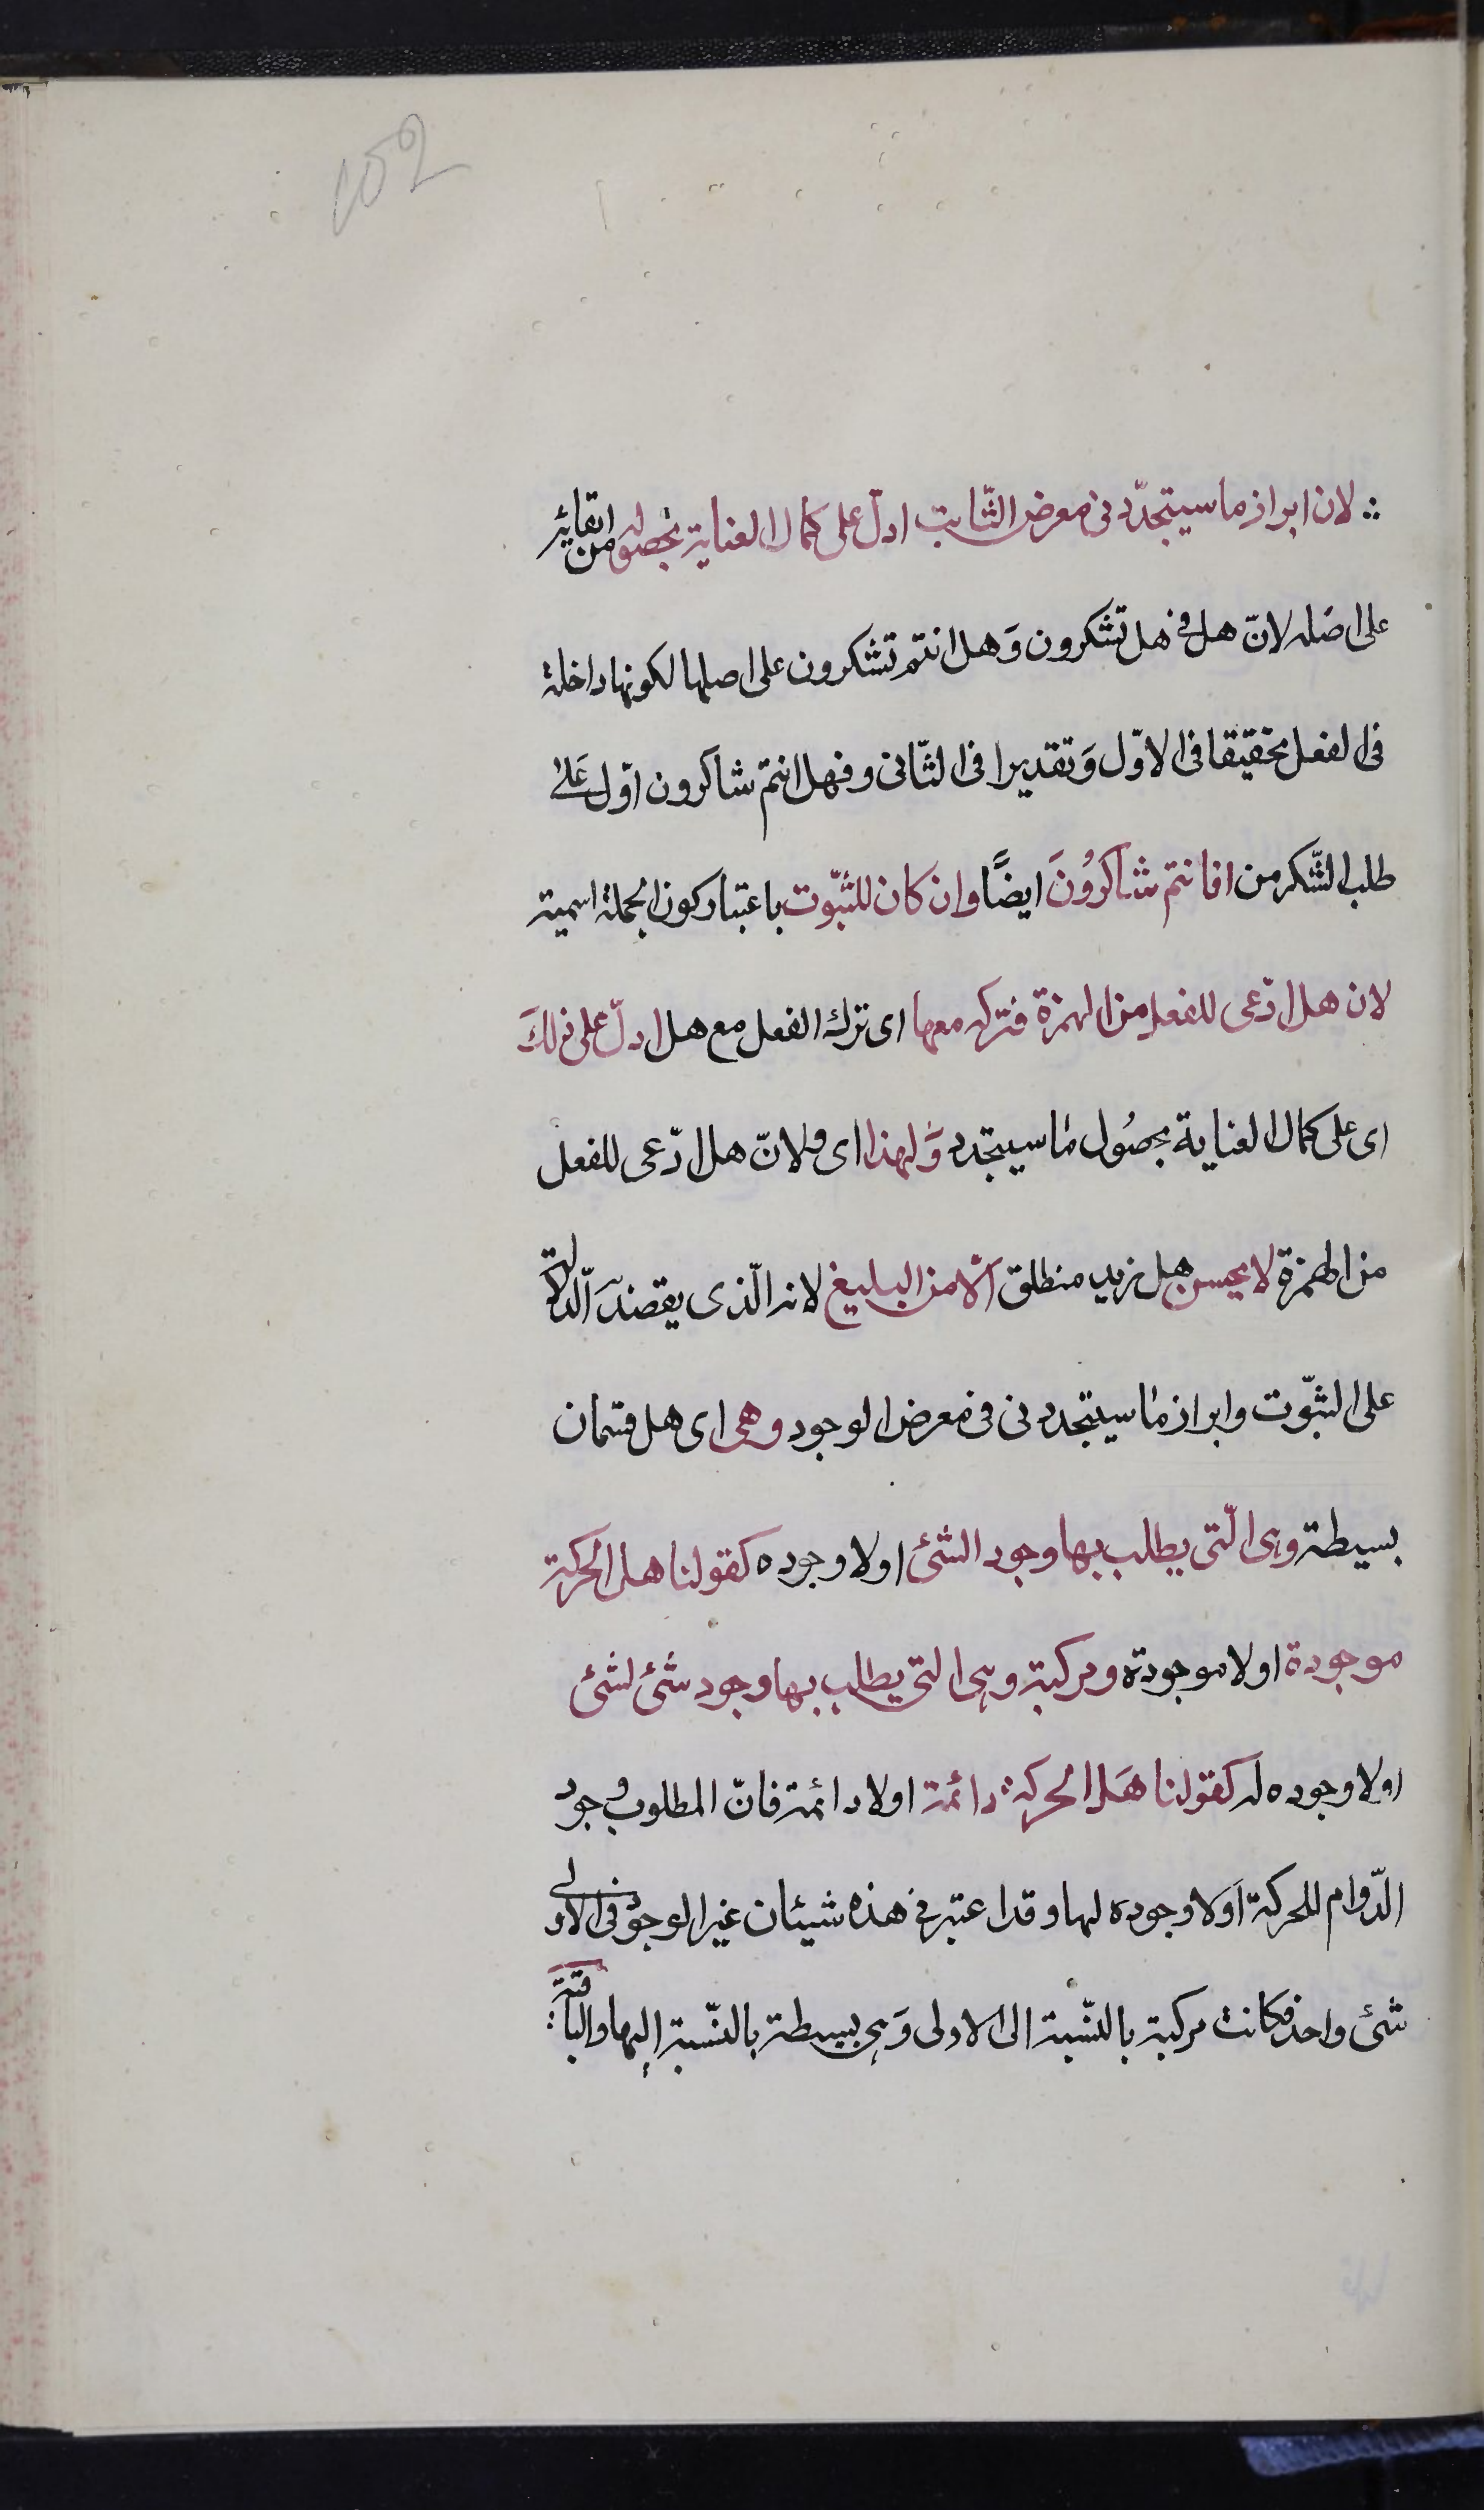 152
لان ابراز ما سيتجدّد فى معرض الثّابت ادلّ على كمال العناية بحصوله من ابقائه
على اصَله لانّ هل فى هل تشكرون وَ هل انتم تشكرون على اصلها لكونها داخلة
فى الفعل تحقيقا فى الاوّل وَ تقديرا فى الثّانى و فهل انتم شاكرون ادّل عَلى
طلب الشّكر من افانتم شاكرُونَ ايضًا وان كان للثّبوت باعتبار كون الجملة اسمية
لان هل ادّعى للفعل من الهمزة فتركه معها اى ترك الفعل مع هل ادلّ على ذلكَ
اى على كمال العناية بحصُول ما سيتجدد وَلهذا اى ولانّ هل ادّعى للفعل
من الهمزة لا يحسن هل زيد منطلق الّا من البليغ لانه الّذى يقصد الدّلالة
على الثّبوت و ابراز ما سيتجدد فى فى معرض الوجود وهى اى هل قسمان
بسيطة وهى الّتى يطلب بها وجود الشئ اولا وجوده كقولنا هل الحركة
موجودة اولا موجودة و مركبة وهى التى يطلب بها وجود شئ لشئ
اولا وجوده له كقولنا هَل الحركة دائمة اولا دائمة فانّ المطلوب وجود
الدّوام للحركة اَولا وجوده لها و قد اعتبر فى هذه شيئان غير الوجود فى الاولى
شئ واحد فكانت مركبة بالنّسبة الى الاولى وَهى بسيطة بالنّسبة اليها والباقية